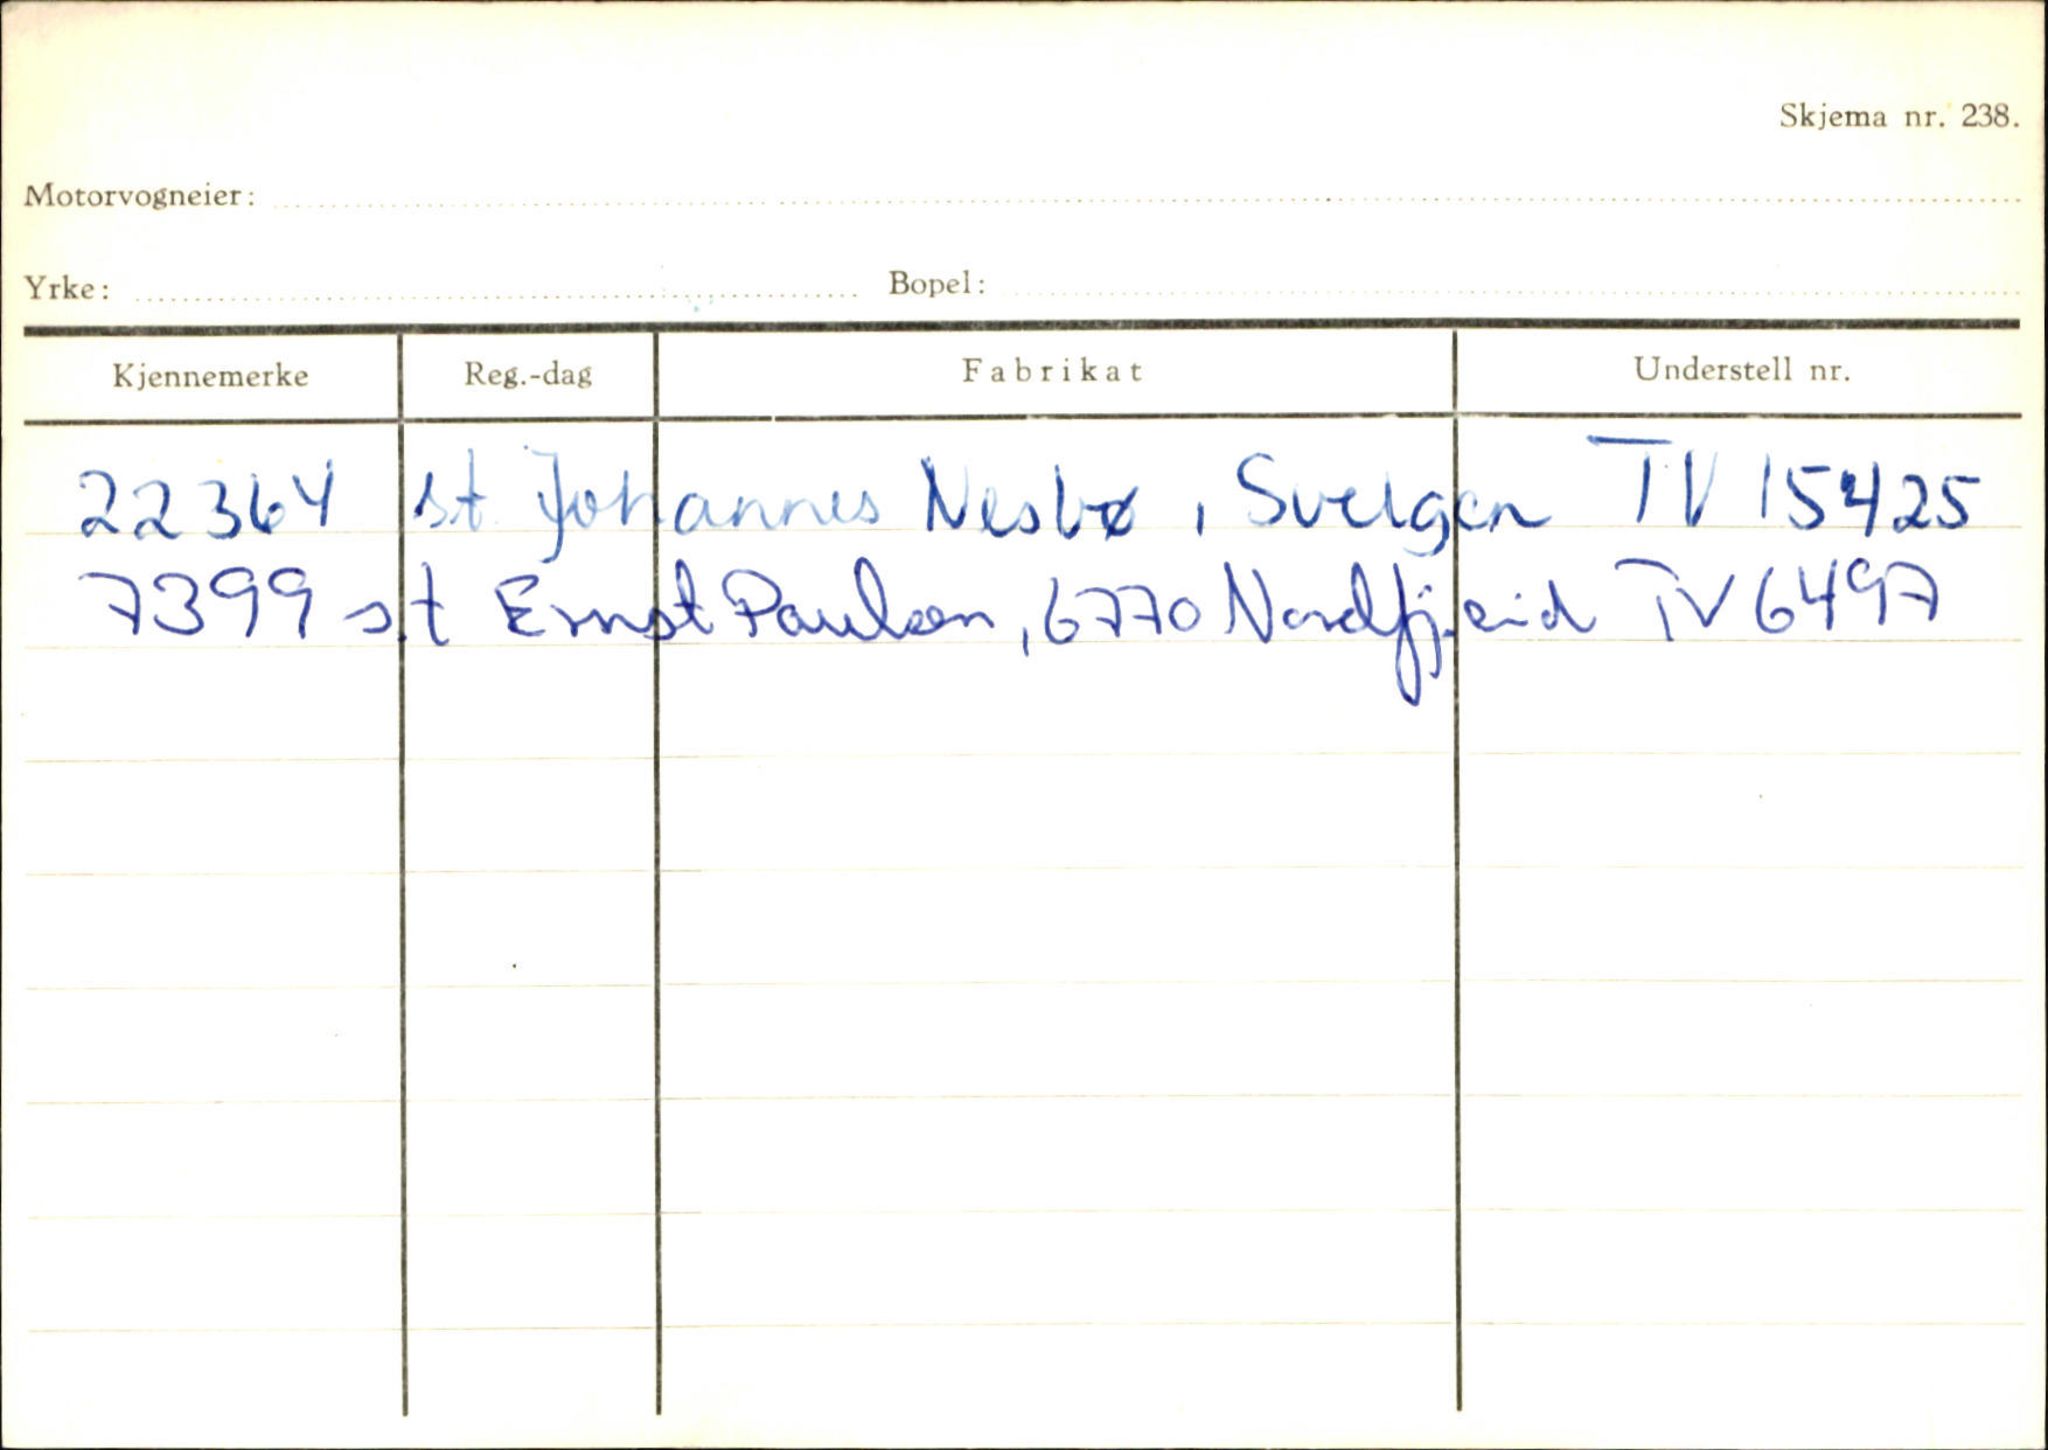 Skjema nr. 238.
Motorvogneier:
Yrke: Bopel:
Kjennemerke Reg.-dag Fabrikat Understell nr.
22364 st Johannes Nesbø, Svelgen TV 15425
7399 st Ernst Paulsen, 6770 Nordfjeid TV 6497